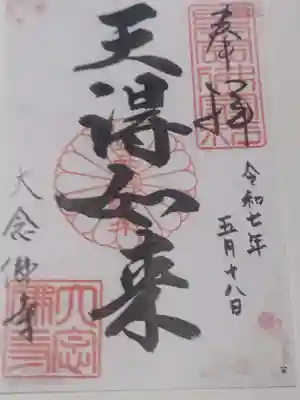 奉拝
令和七年
五月十八日
天得如来
大念佛寺